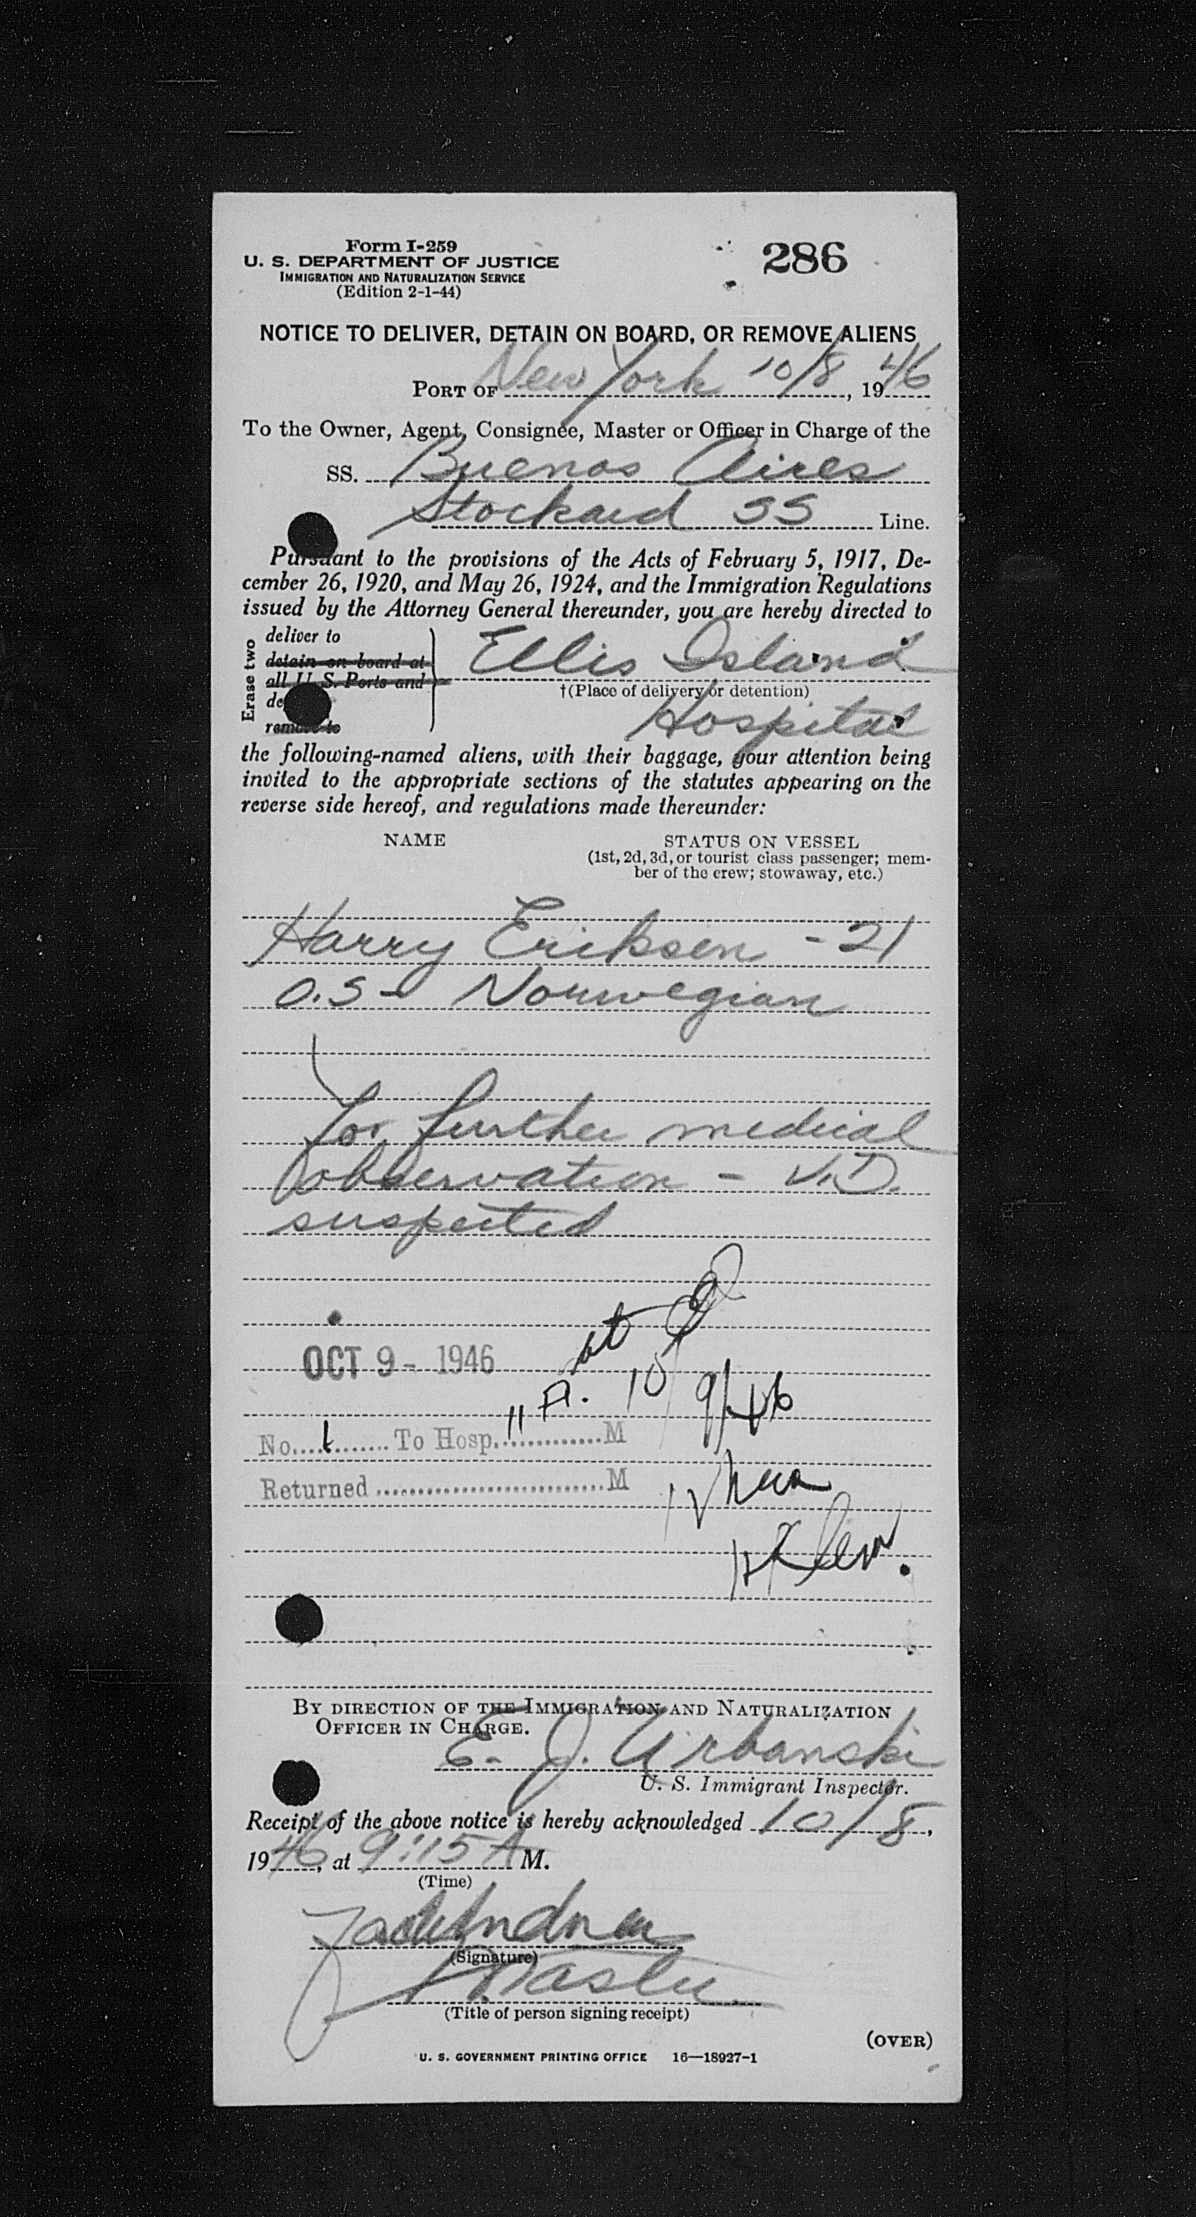 Form I-259
U. S. DEPARTMENT OF JUSTICE
IMMIGRATION AND NATURALIZATION SERVICE
(Edition 2-1-44)
286
NOTICE TO DELIVER, DETAIN ON BOARD, OR REMOVE ALIENS
PORT OF New York 10/8, 1946
To the Owner, Agent, Consignee, Master or Officer in Charge of the
SS. Buenos Aires
Stockard SS Line.
Pursuant to the provisions of the Acts of February 5, 1917, De-
cember 26, 1920, and May 26, 1924, and the Immigration Regulations
issued by the Attorney General thereunder, you are hereby directed to
Erase two
deliver to
detain on board at
all U. S. Ports and
remove to
Ellis Island
†(Place of delivery or detention)
Hospital
the following-named aliens, with their baggage, your attention being
invited to the appropriate sections of the statutes appearing on the
reverse side hereof, and regulations made thereunder:
NAME STATUS ON VESSEL
(1st, 2d, 3d, or tourist class passenger; mem-
ber of the crew; stowaway, etc.)
Harry Eriksen - 21
O.S - Norwegian
For further medical
observation - V.D.
suspected
at
OCT 9 - 1946
10/9/46
No. 1 To Hosp. 11 A. M
Returned M
BY DIRECTION OF THE IMMIGRATION AND NATURALIZATION
OFFICER IN CHARGE.
E. J. Urbanski
U. S. Immigrant Inspector.
Receipt of the above notice is hereby acknowledged 10/8,
1946, at 9:15 A M.
(Time)
(Signature)
Master
(Title of person signing receipt)
(OVER)
U. S. GOVERNMENT PRINTING OFFICE 16—18927-1